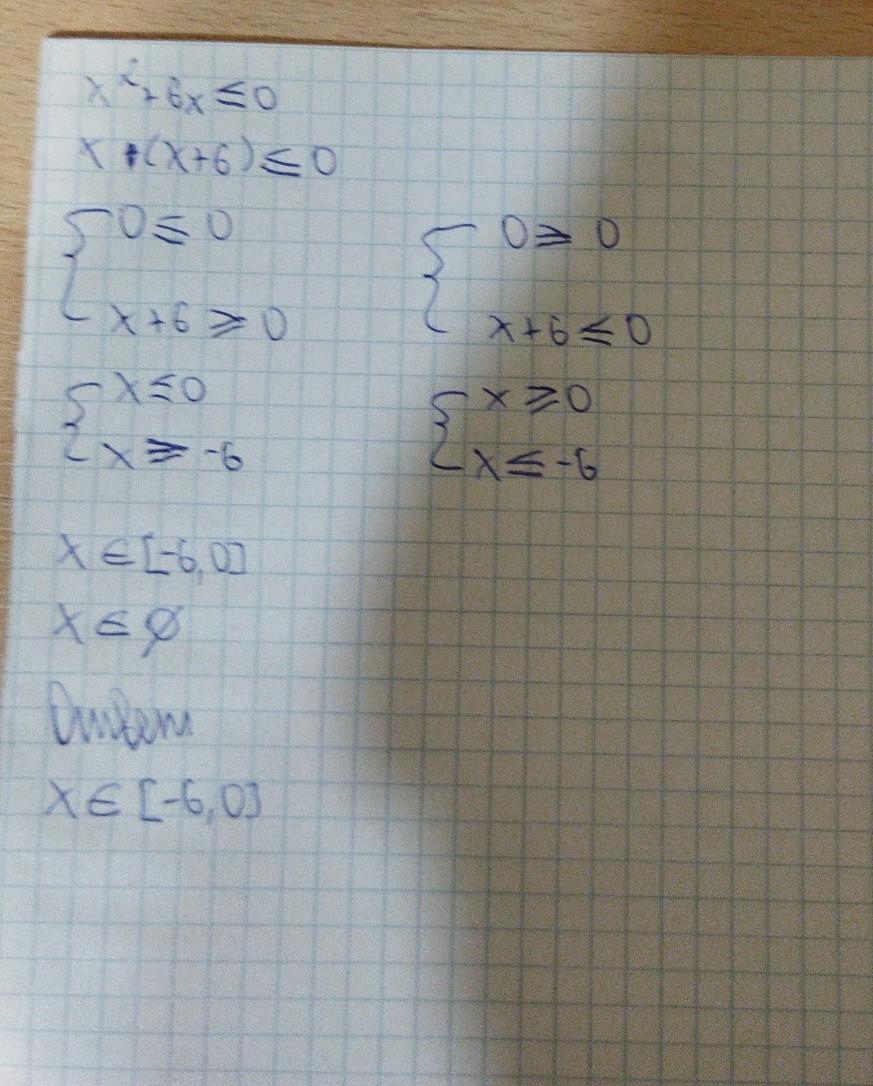 x² + 6x ≤ 0
x · (x+6) ≤ 0
{ 0 ≤ 0
x+6 ≥ 0
{ 0 ≥ 0
x+6 ≤ 0
{ x ≤ 0
x ≥ -6
{ x ≥ 0
x ≤ -6
x ∈ [-6,0]
x ∈ ∅
Ответ
x ∈ [-6,0]